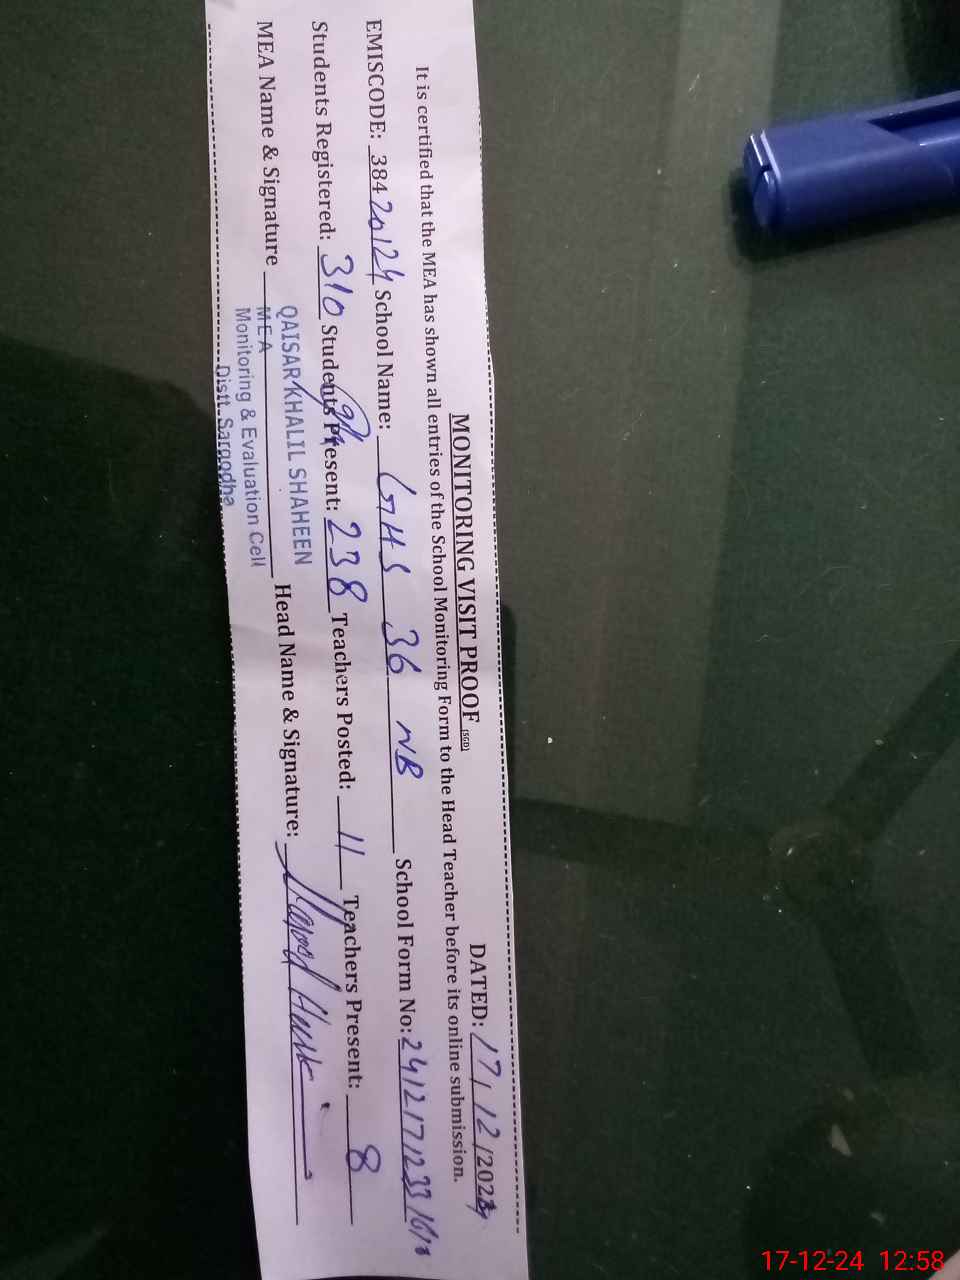 MONITORING VISIT PROOF (SGD) DATED: 17/12/2024
It is certified that the MEA has shown all entries of the School Monitoring Form to the Head Teacher before its online submission.
EMISCODE: 38420124 School Name: GHS 36 NB School Form No: 241217123316
Students Registered: 310 Students Present: 238 Teachers Posted: 11 Teachers Present: 8
MEA Name & Signature Head Name & Signature:
QAISAR KHALIL SHAHEEN
MEA
Monitoring & Evaluation Cell
Distt. Sargodha
17-12-24 12:58